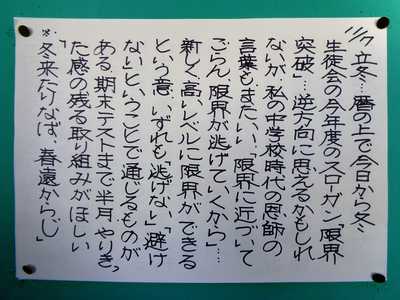 11/7 立冬…暦の上で今日から冬
生徒会の今年度のスローガン「限界
突破」…逆方向に思えるかもしれ
ないが、私の中学校時代の恩師の
言葉もまたいい、「限界に近づいて
ごらん、限界が逃げていくから」…
新しく高いレベルに限界ができる
という意、いずれも「逃げない」「避け
ない」ということで通じるものが
ある 期末テストまで半月 やりきっ
た感の残る取り組みがほしい
※「冬来たりなば、春遠からじ」